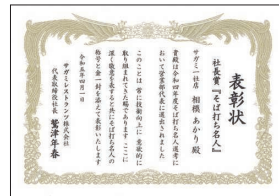 表彰状
社長賞『そば打ち名人』
サガミ一社店 相模 あかり殿
貴殿は令和四年度そば打ち名人選考に
おいて営業部代表に選出されました
このことは 常に技術向上に 意欲的に
取り組まれてきた賜であります ここに
深く敬意を表すると共にそば打ち名人の
称号と金一封を添えて表彰いたします
令和五年四月一日
サガミレストランツ株式会社
代表取締役社長 鷲津年春